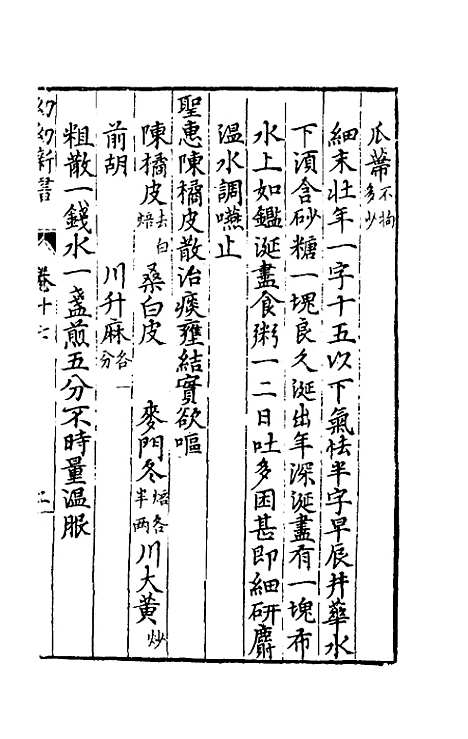 瓜蔕不拘多少
細末壯年一字十五以下氣怯半字早辰井華水
下湏含砂糖一塊良久涎出年深涎盡有一塊布
水上如鑑涎盡食粥一二日吐多困甚即細研麝
溫水調嚥止
聖惠陳橘皮散治痰壅結實欲嘔
陳橘皮去白焙 桑白皮 麥門冬焙各半两 川大黄炒
前胡 川升麻各一分
粗散一錢水一盞煎五分不時量溫服
幼幼新書 卷十七